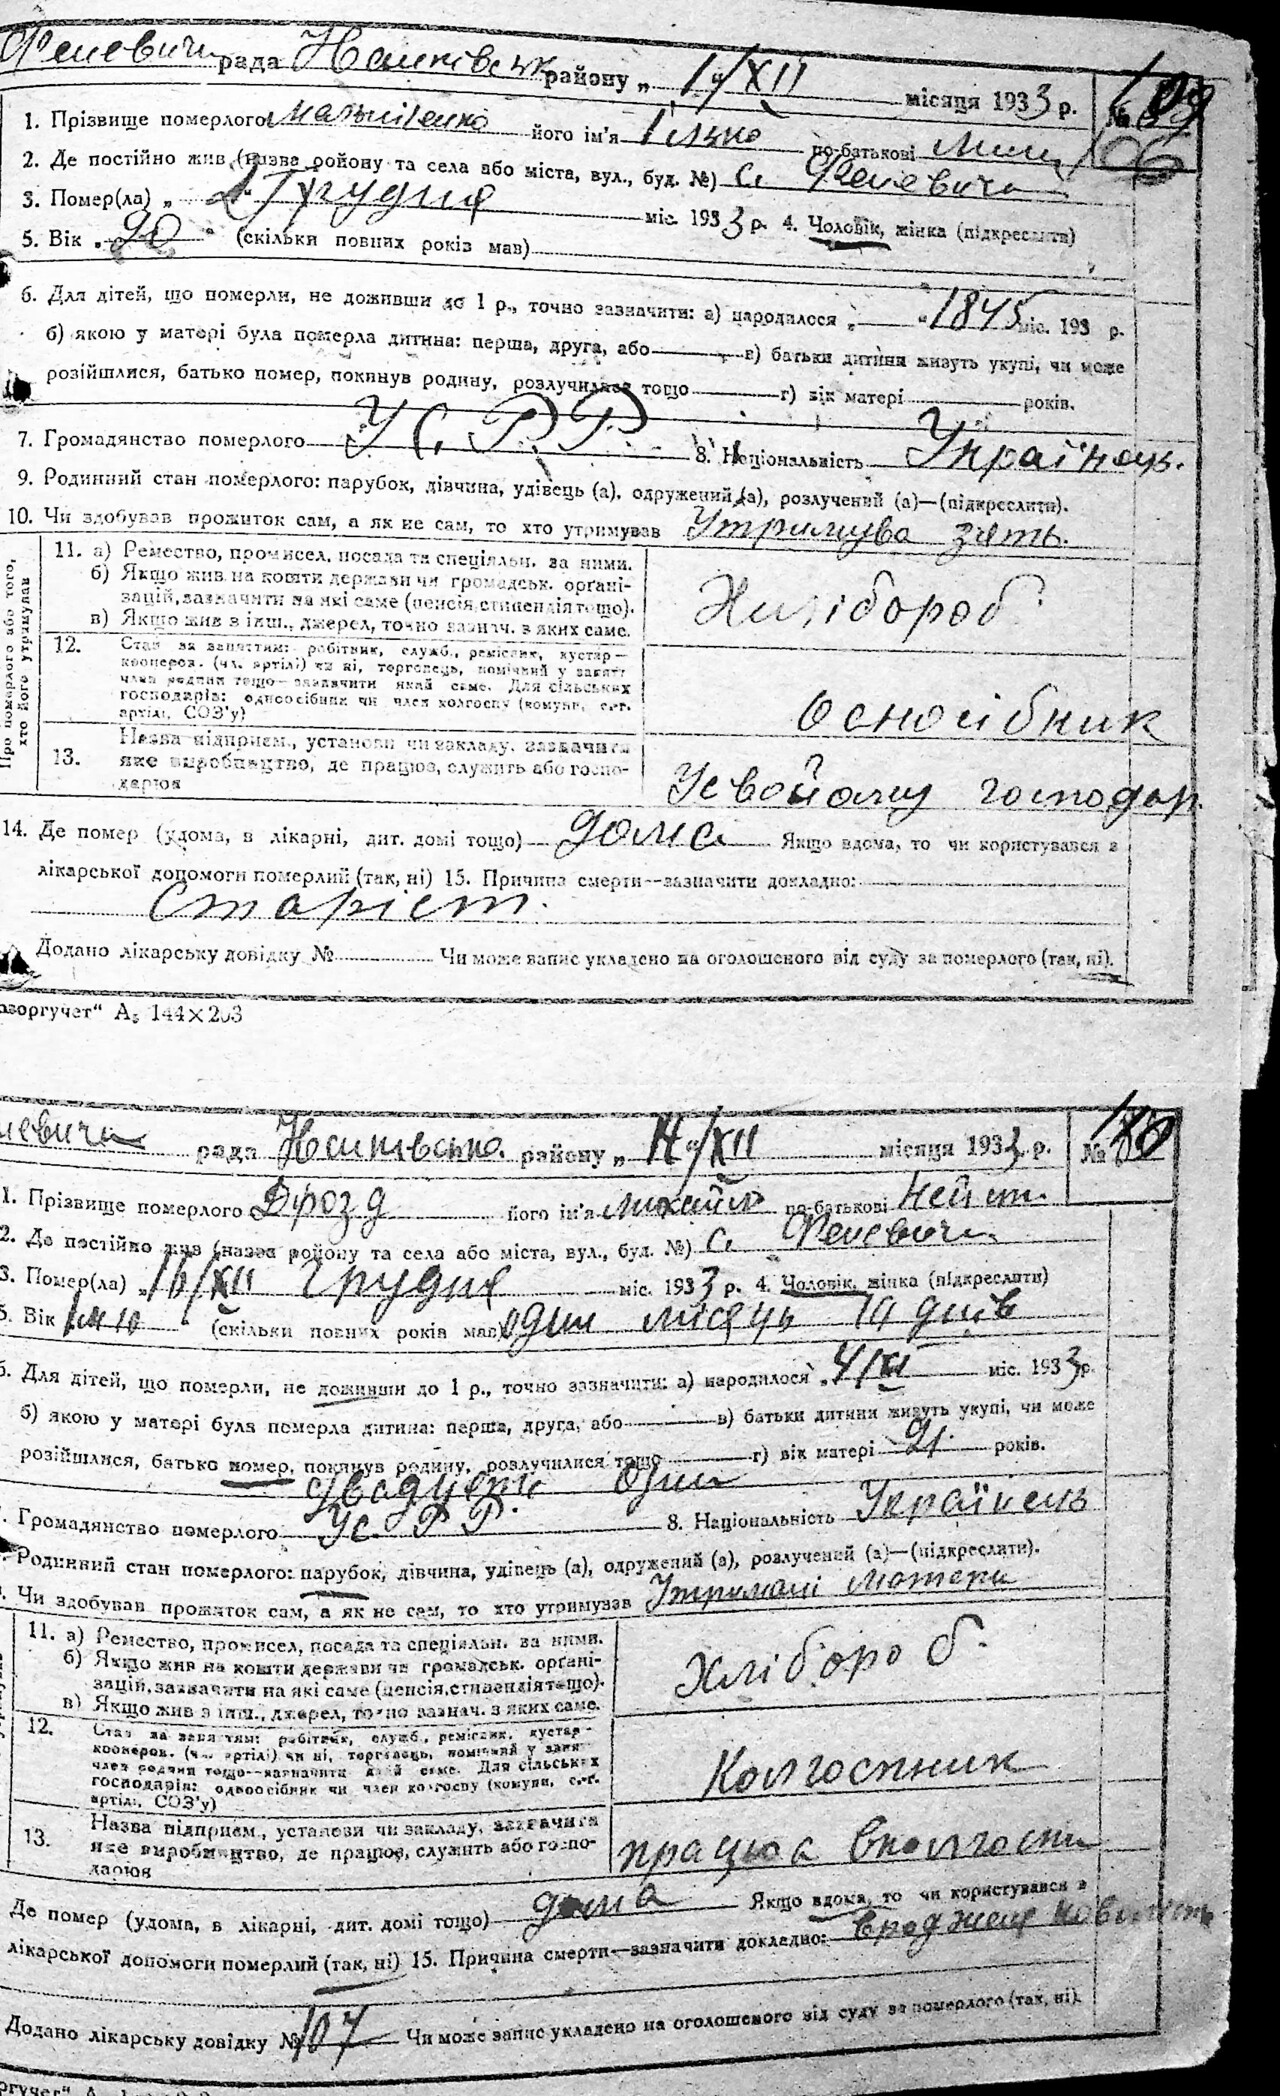 Феневичи рада Іванківськ району „1“/XII місяця 1933 р. № 109
1. Прізвище померлого його ім'я Ілько по-батькові
2. Де постійно жив (назва району та села або міста, вул., буд. №) с. Феневичи
3. Помер(ла) „2“ Грудня міс. 1933 р. 4. Чоловік, жінка (підкреслити)
5. Вік „90“ (скільки повних років мав)
6. Для дітей, що померли, не доживши до 1 р., точно зазначити: а) народилося „ “ 1845 міс. 193 р.
б) якою у матері була померла дитина: перша, друга, або в) батьки дитини живуть укупі, чи може
розійшлися, батько помер, покинув родину, розлучилися тощо г) вік матері років.
7. Громадянство померлого УСРР 8. Національність Українець.
9. Родинний стан померлого: парубок, дівчина, удівець (а), одружений (а), розлучений (а)—(підкреслити).
10. Чи здобував прожиток сам, а як не сам, то хто утримував Утримува зять.
Про померлого або того, хто його утримував
11. а) Ремество, промисел, посада та спеціяльн. за ними.
б) Якщо жив на кошти держави чи громадськ. органі-
зацій, зазначити на які саме (пенсія, стипендія тощо).
в) Якщо жив з інш., джерел, точно зазнач. з яких саме.
Хлібороб
12. Стан за заняттям: робітник, служб., ремісник, кустар—
кооперов. (чл. артілі) чи ні, торговець, помічний у занят.
член родини тощо—зазначити який саме. Для сільських
господарів: одноосібник чи член колгоспу (комуни, с.-г.
артілі, СОЗ'у)
осносібник
13. Назва підприєм., установи чи закладу, зазначити
яке виробництво, де працює, служить або госпо-
дарює
Усвойому господар.
14. Де помер (удома, в лікарні, дит. домі тощо) дома Якщо вдома, то чи користувався з
лікарської допомоги померлий (так, ні) 15. Причина смерти—зазначити докладно:
Старіст.
Додано лікарську довідку № Чи може запис укладено на оголошеного від суду за померлого (так, ні).
азоргучет“ А5 144×203
невичи рада Іванківсько. району „14“/XII місяця 1933 р. № 110
1. Прізвище померлого Дрозд його ім'я Михайло по-батькові
2. Де постійно жив (назва району та села або міста, вул., буд. №) с. Феневичи
3. Помер(ла) „16/XII Грудня міс. 1933 р. 4. Чоловік, жінка (підкреслити)
5. Вік (скільки повних років мав) один місяць 14 днів
6. Для дітей, що померли, не доживши до 1 р., точно зазначити: а) народилося „4/XI міс. 1933 р.
б) якою у матері була померла дитина: перша, друга, або в) батьки дитини живуть укупі, чи може
розійшлися, батько помер, покинув родину, розлучилися тощо г) вік матері 21. років.
двадцять один
Громадянство померлого УСРР 8. Національність Українець
Родинний стан померлого: парубок, дівчина, удівець (а), одружений (а), розлучений (а)—(підкреслити).
Чи здобував прожиток сам, а як не сам, то хто утримував Утримані матери
11. а) Ремество, промисел, посада та спеціяльн. за ними.
б) Якщо жив на кошти держави чи громадськ. органі-
зацій, зазначити на які саме (пенсія, стипендія тощо).
в) Якщо жив з інш., джерел, точно зазнач. з яких саме.
Хлібороб.
12. Стан за заняттям: робітник, служб., ремісник, кустар—
кооперов. (чл. артілі) чи ні, торговець, помічний у занят.
член родини тощо—зазначити який саме. Для сільських
господарів: одноосібник чи член колгоспу (комуни, с.-г.
артілі, СОЗ'у)
Колгоспник
13. Назва підприєм., установи чи закладу, зазначити
яке виробництво, де працює, служить або госпо-
дарює
працює вколгоспи
Де помер (удома, в лікарні, дит. домі тощо) дома Якщо вдома, то чи користувався з
лікарської допомоги померлий (так, ні) 15. Причина смерти—зазначити докладно:
Додано лікарську довідку № 107 Чи може запис укладено на оголошеного від суду за померлого (так, ні).